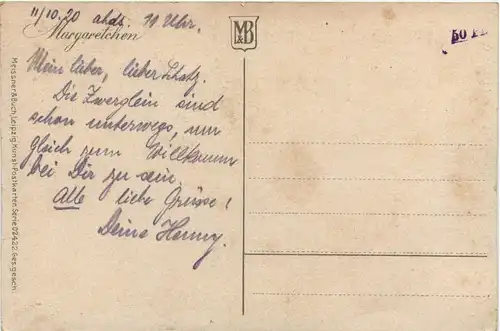 11/10.20 abds. 11 Uhr.
Margaretchen
M&B
50 Pf.
Mein lieber, lieber Schatz.
Die Zwerglein sind
schon unterwegs, um
gleich zum Willkomm
bei Dir zu sein.
Alle liebe Grüsse!
Deine Henny.
Meissner & Buch, Leipzig, Kunst-Postkarten Serie 02422 Ges. gesch.